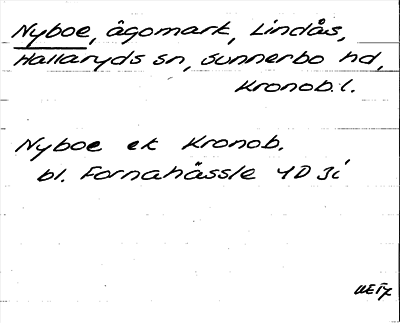 Nyboe, ägomark, Lindås,
Hallaryds sn, Sunnerbo hd,
Kronob.l.
Nyboe ek Kronob.
bl. Fornahässle 4D 3i